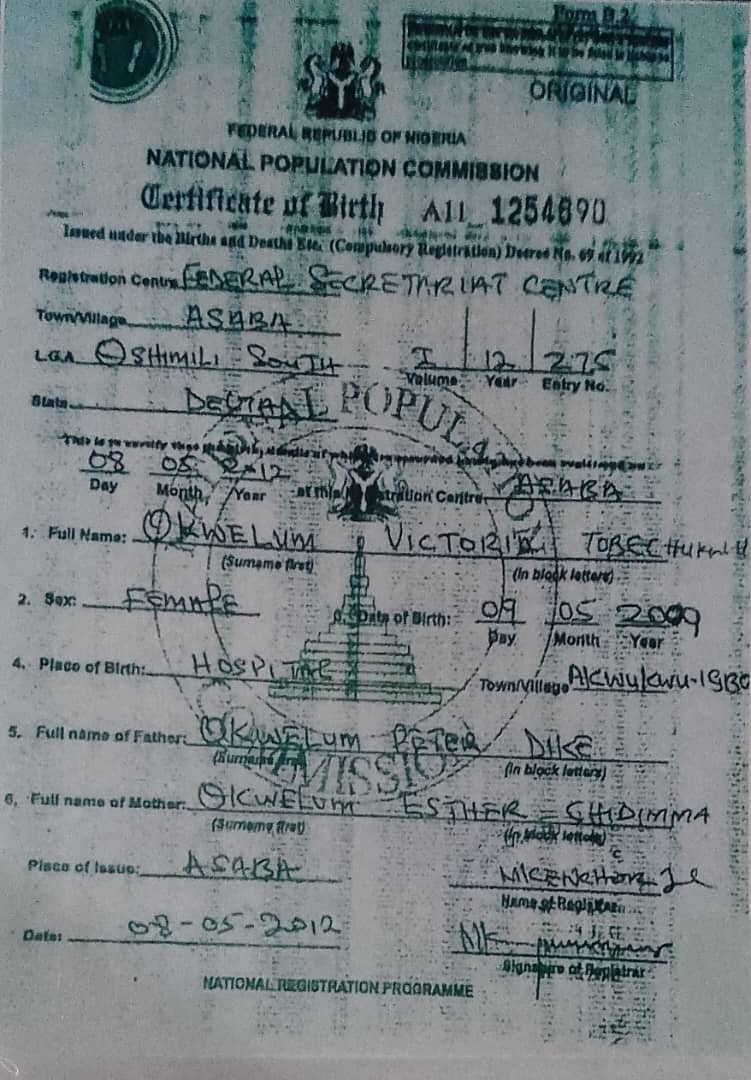 Form B.2
ORIGINAL
FEDERAL REPUBLIC OF NIGERIA
NATIONAL POPULATION COMMISSION
Certificate of Birth A11 1254690
Issued under the Births and Deaths Etc. (Compulsory Registration) Decree No. 69 of 1992
Registration Centre FEDERAL SECRETARIAT CENTRE
Town/Village ASABA
L.G.A OSHIMILI SOUTH I 12 275
Volume Year Entry No.
State DELTA
NATIONAL POPULATION COMMISSION
08 05 2012 at this Registration Centre ASABA
Day Month Year
1. Full Name: OKWELUM VICTORIA TOBECHUKWU
(Surname first) (in block letters)
2. Sex: FEMALE Date of Birth: 09 05 2009
Day Month Year
4. Place of Birth: HOSPITAL Town/Village AKWUKWU-IGBO
5. Full name of Father: OKWELUM PETER DIKE
(Surname first) (in block letters)
6, Full name of Mother: OKWELUM ESTHER = CHIDIMMA
(Surname first) (in block letters)
Place of Issue: ASABA
Name of Registrar
Date: 08-05-2012
Signature of Registrar
NATIONAL REGISTRATION PROGRAMME